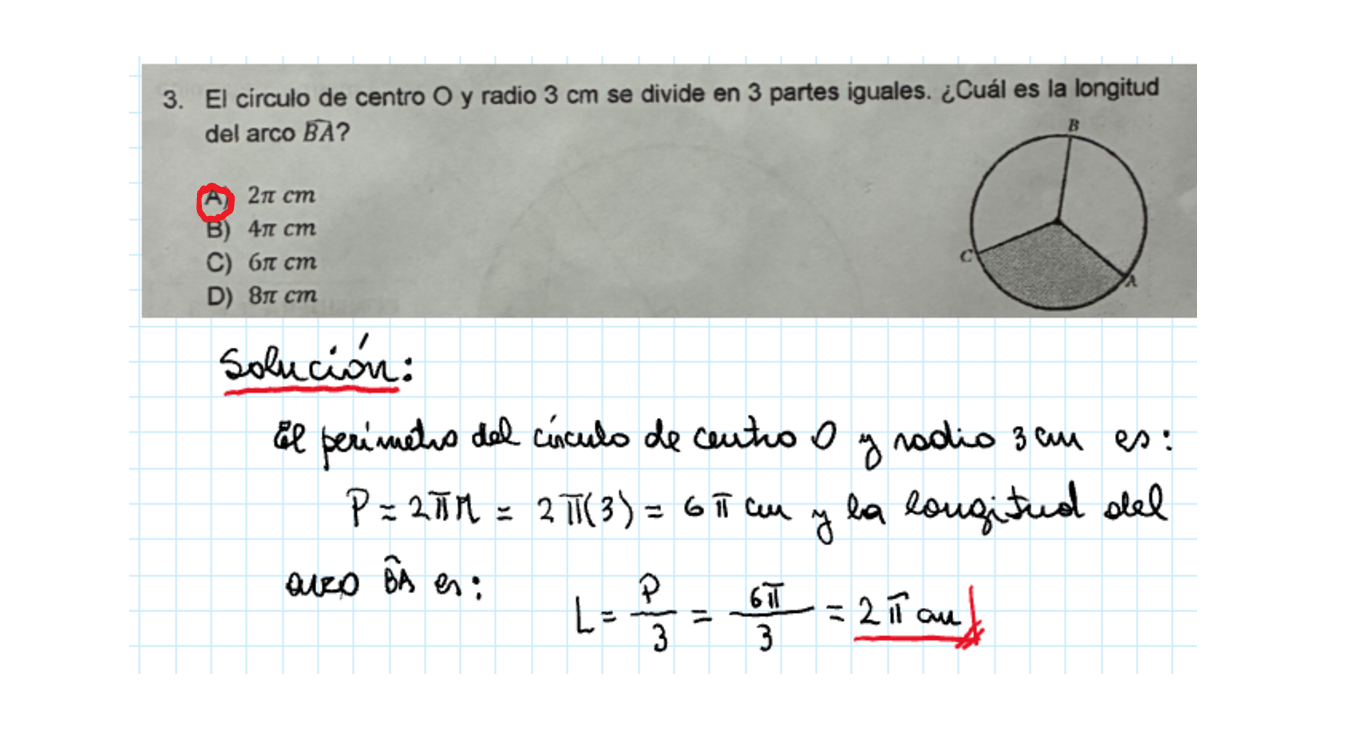 3. El círculo de centro O y radio 3 cm se divide en 3 partes iguales. ¿Cuál es la longitud
del arco \widehat{BA}?
A) 2π cm
B) 4π cm
C) 6π cm
D) 8π cm
B
C
A
Solución:
El perímetro del círculo de centro O y radio 3 cm es:
P = 2πr = 2π(3) = 6π cm y la longitud del
arco \widehat{BA} es: L = \frac{P}{3} = \frac{6π}{3} = 2π cm